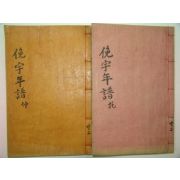 俛宇年譜 乾
俛宇年譜 坤